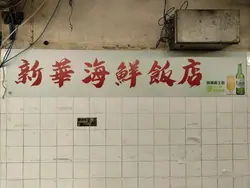 新華海鮮飯店